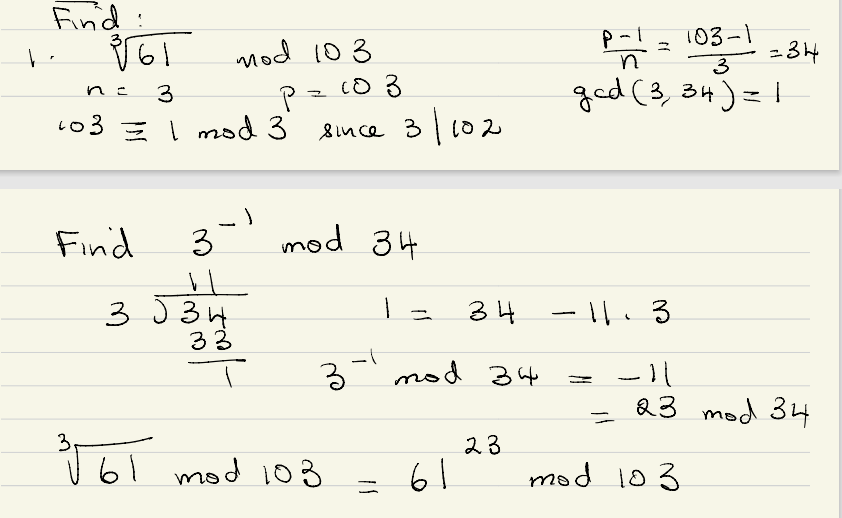 Find :
1. ∛61 mod 103
n = 3 p = 103
103 ≡ 1 mod 3 since 3 | 102
(p-1)/n = (103-1)/3 = 34
gcd(3, 34) = 1
Find 3⁻¹ mod 34
11
3 ) 34
33
1
1 = 34 - 11 . 3
3⁻¹ mod 34 = -11
= 23 mod 34
∛61 mod 103 = 61²³ mod 103